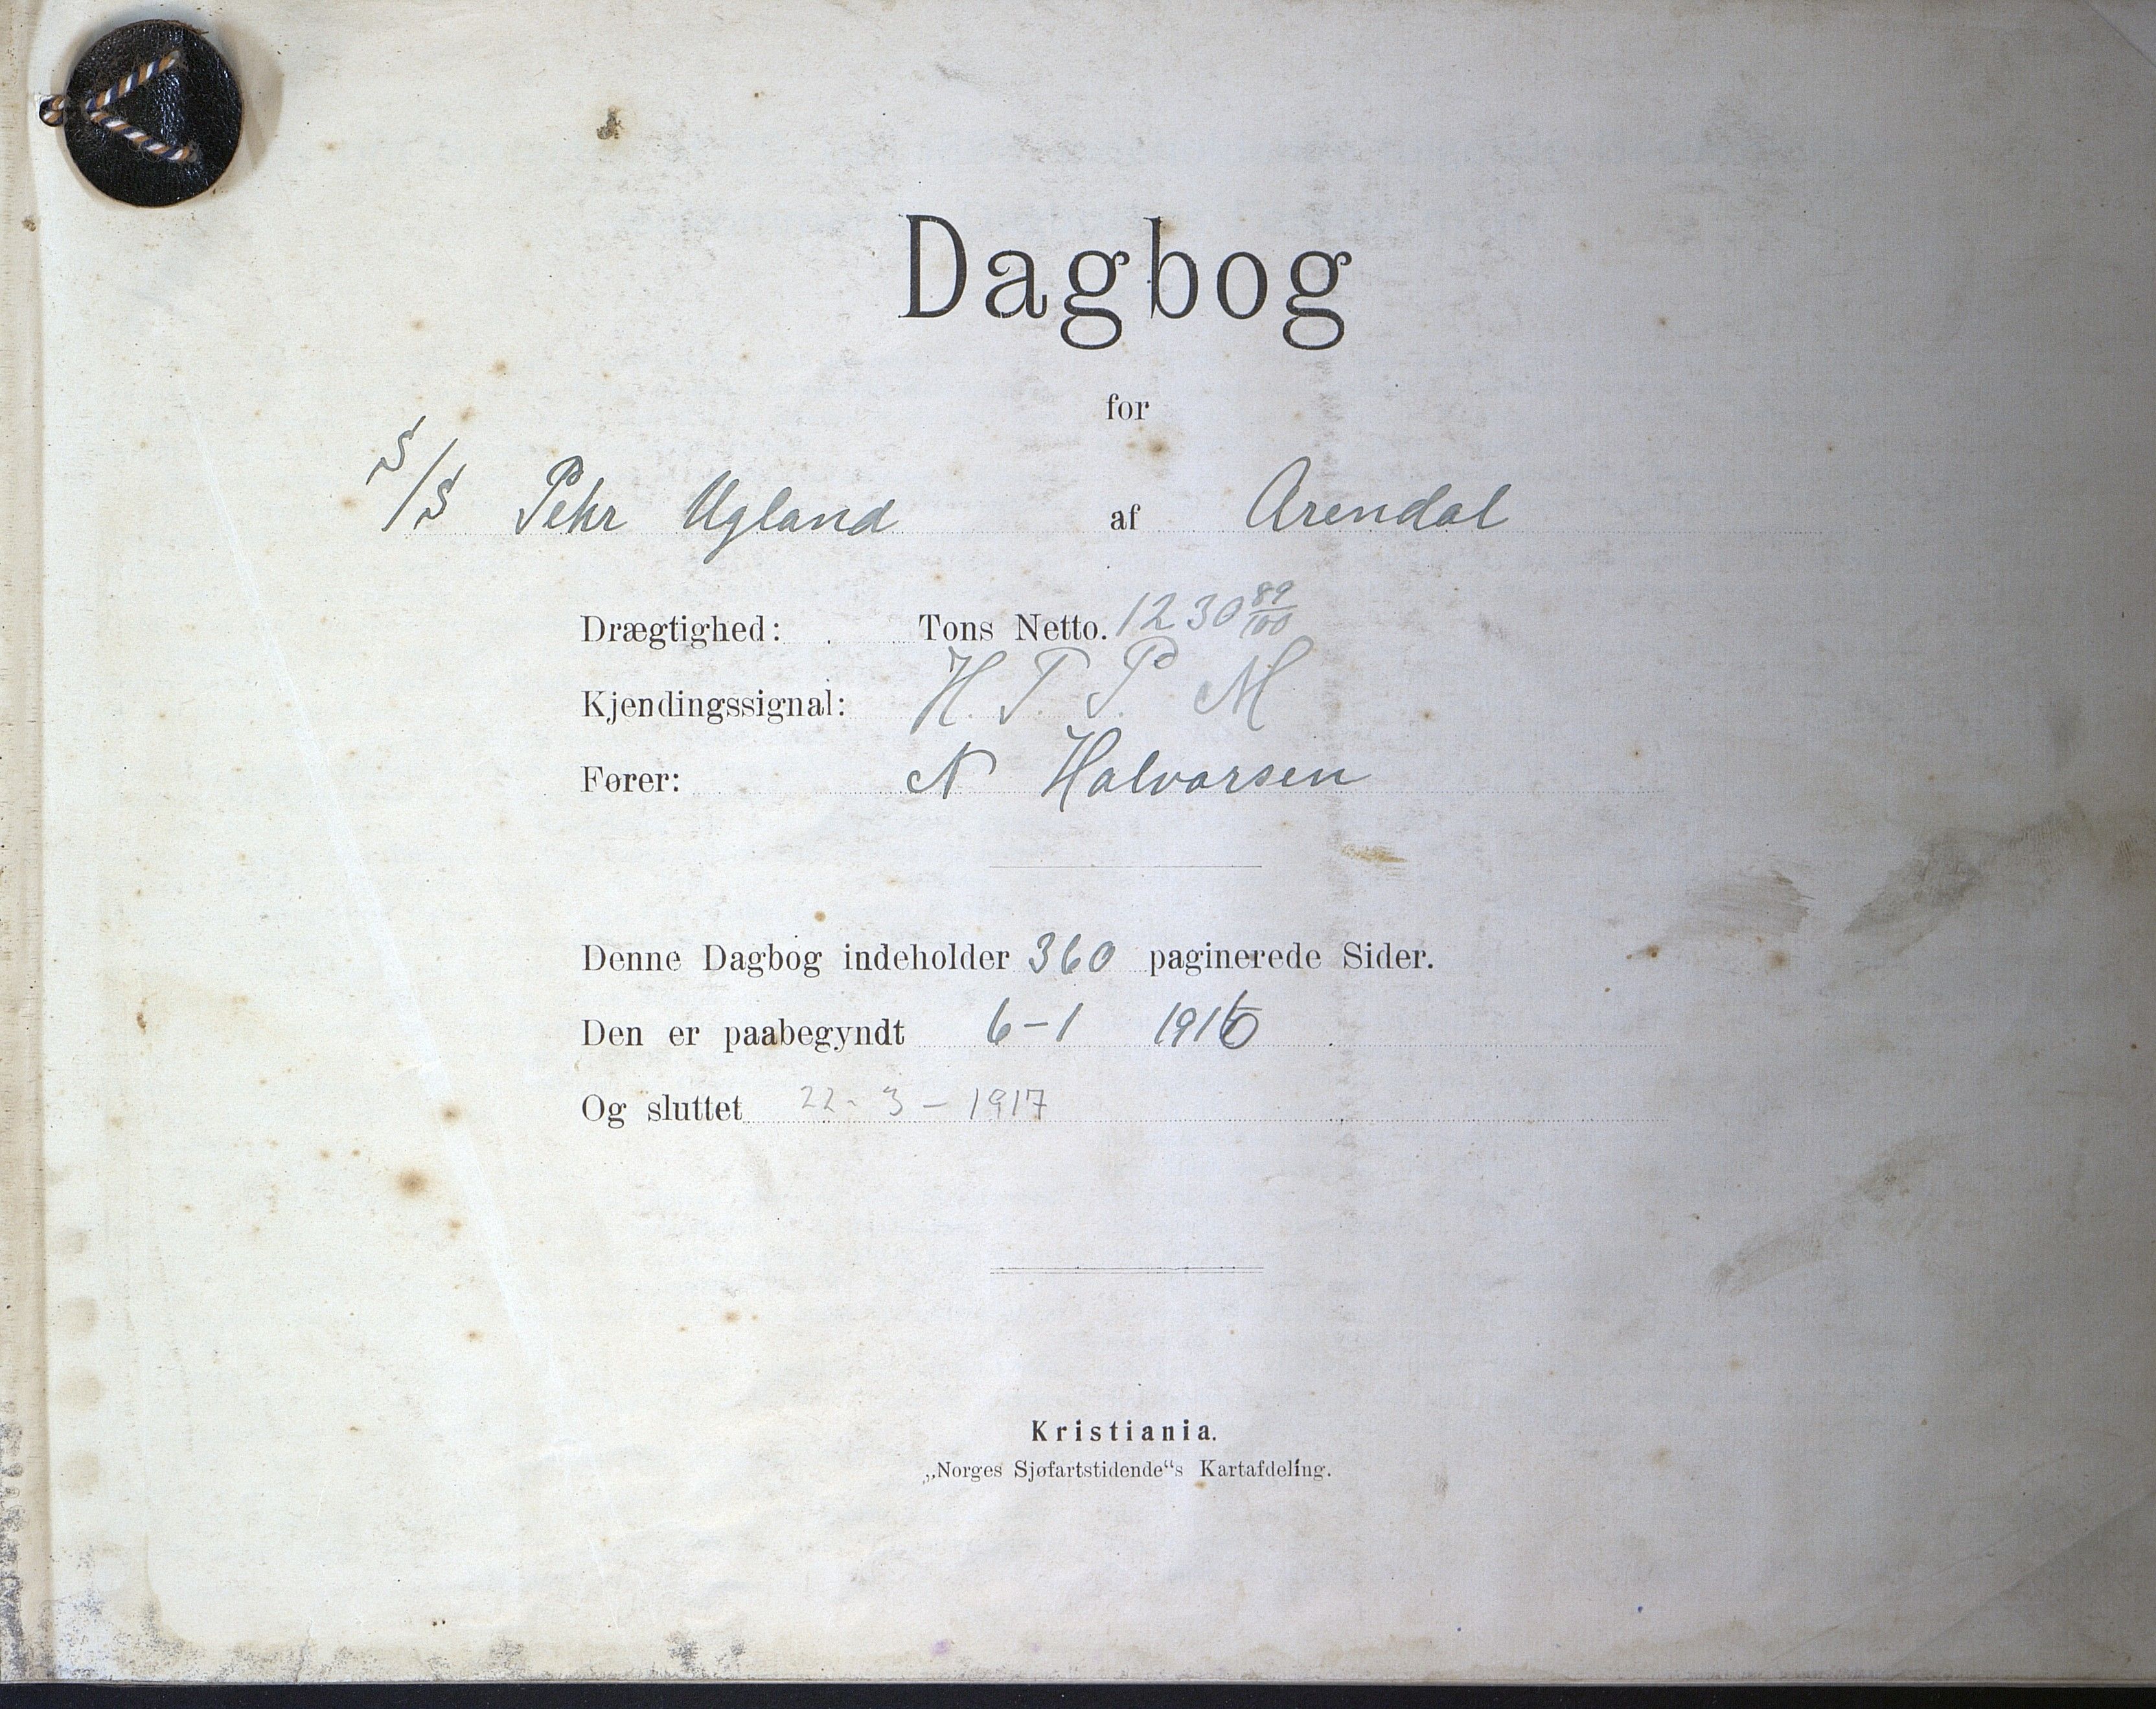 Dagbog
for
S/S Pehr Ugland af Arendal
Drægtighed: Tons Netto. 1230 89/100
Kjendingssignal: H. T. P. M
Fører: N Halvorsen
Denne Dagbog indeholder 360 paginerede Sider.
Den er paabegyndt 6-1 1916
Og sluttet 22-3-1917
Kristiania.
„Norges Sjøfartstidende“s Kartafdeling.